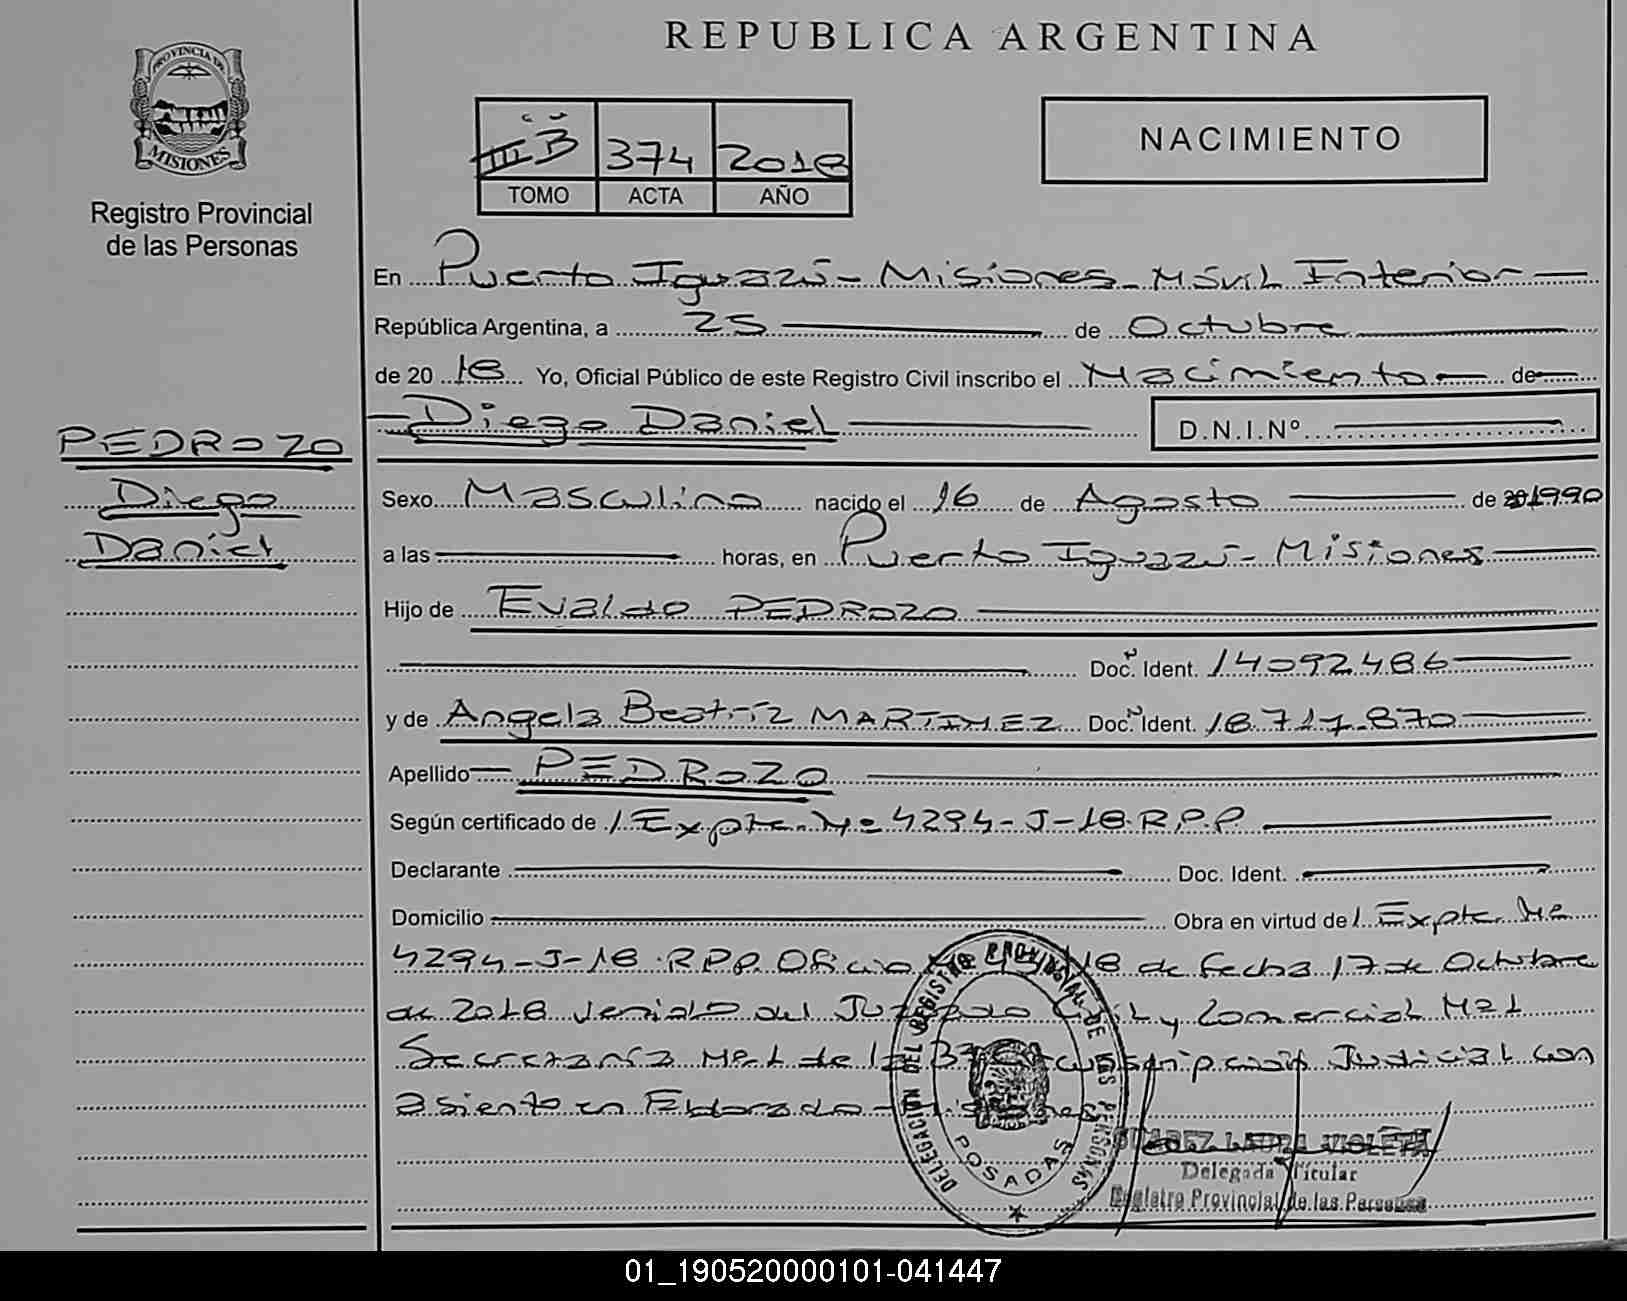 REPUBLICA ARGENTINA
PROVINCIA DE
MISIONES
Registro Provincial
de las Personas
B 374 2018
TOMO ACTA AÑO
NACIMIENTO
En Puerto Iguazú - Misiones - Móvil Interior
República Argentina, a 25 de Octubre
de 2018 Yo, Oficial Público de este Registro Civil inscribo el Nacimiento de
Diego Daniel D.N.I.Nº
PEDROZO
Diego
Daniel
Sexo Masculino nacido el 16 de Agosto de 1990
a las horas, en Puerto Iguazú - Misiones
Hijo de Evaldo PEDROZO
Doc. Ident. 14092486
y de Angela Beatríz MARTINEZ Doc. Ident. 18.717.870
Apellido PEDROZO
Según certificado de / Expte. Nº 4294-J-18.R.P.P.
Declarante Doc. Ident.
Domicilio Obra en virtud de / Expte. Nº
4294-J-18.R.P.P. Oficio 18 de fecha 17 de Octubre
de 2018 venido del Juzgado Civil y Comercial Nº1
Secretaría Nº1 de la 3ª Circunscripción Judicial con
asiento en Eldorado - Misiones
DELEGACION DEL REGISTRO PROVINCIAL DE LAS PERSONAS
POSADAS
SUAREZ LAURA VIOLETA
Delegada Titular
Registro Provincial de las Personas
01_190520000101-041447